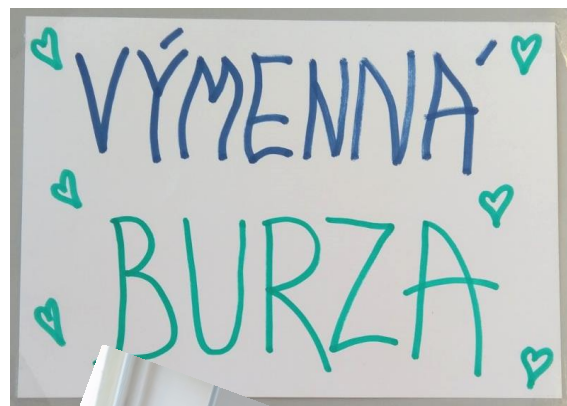 VÝMENNÁ
BURZA